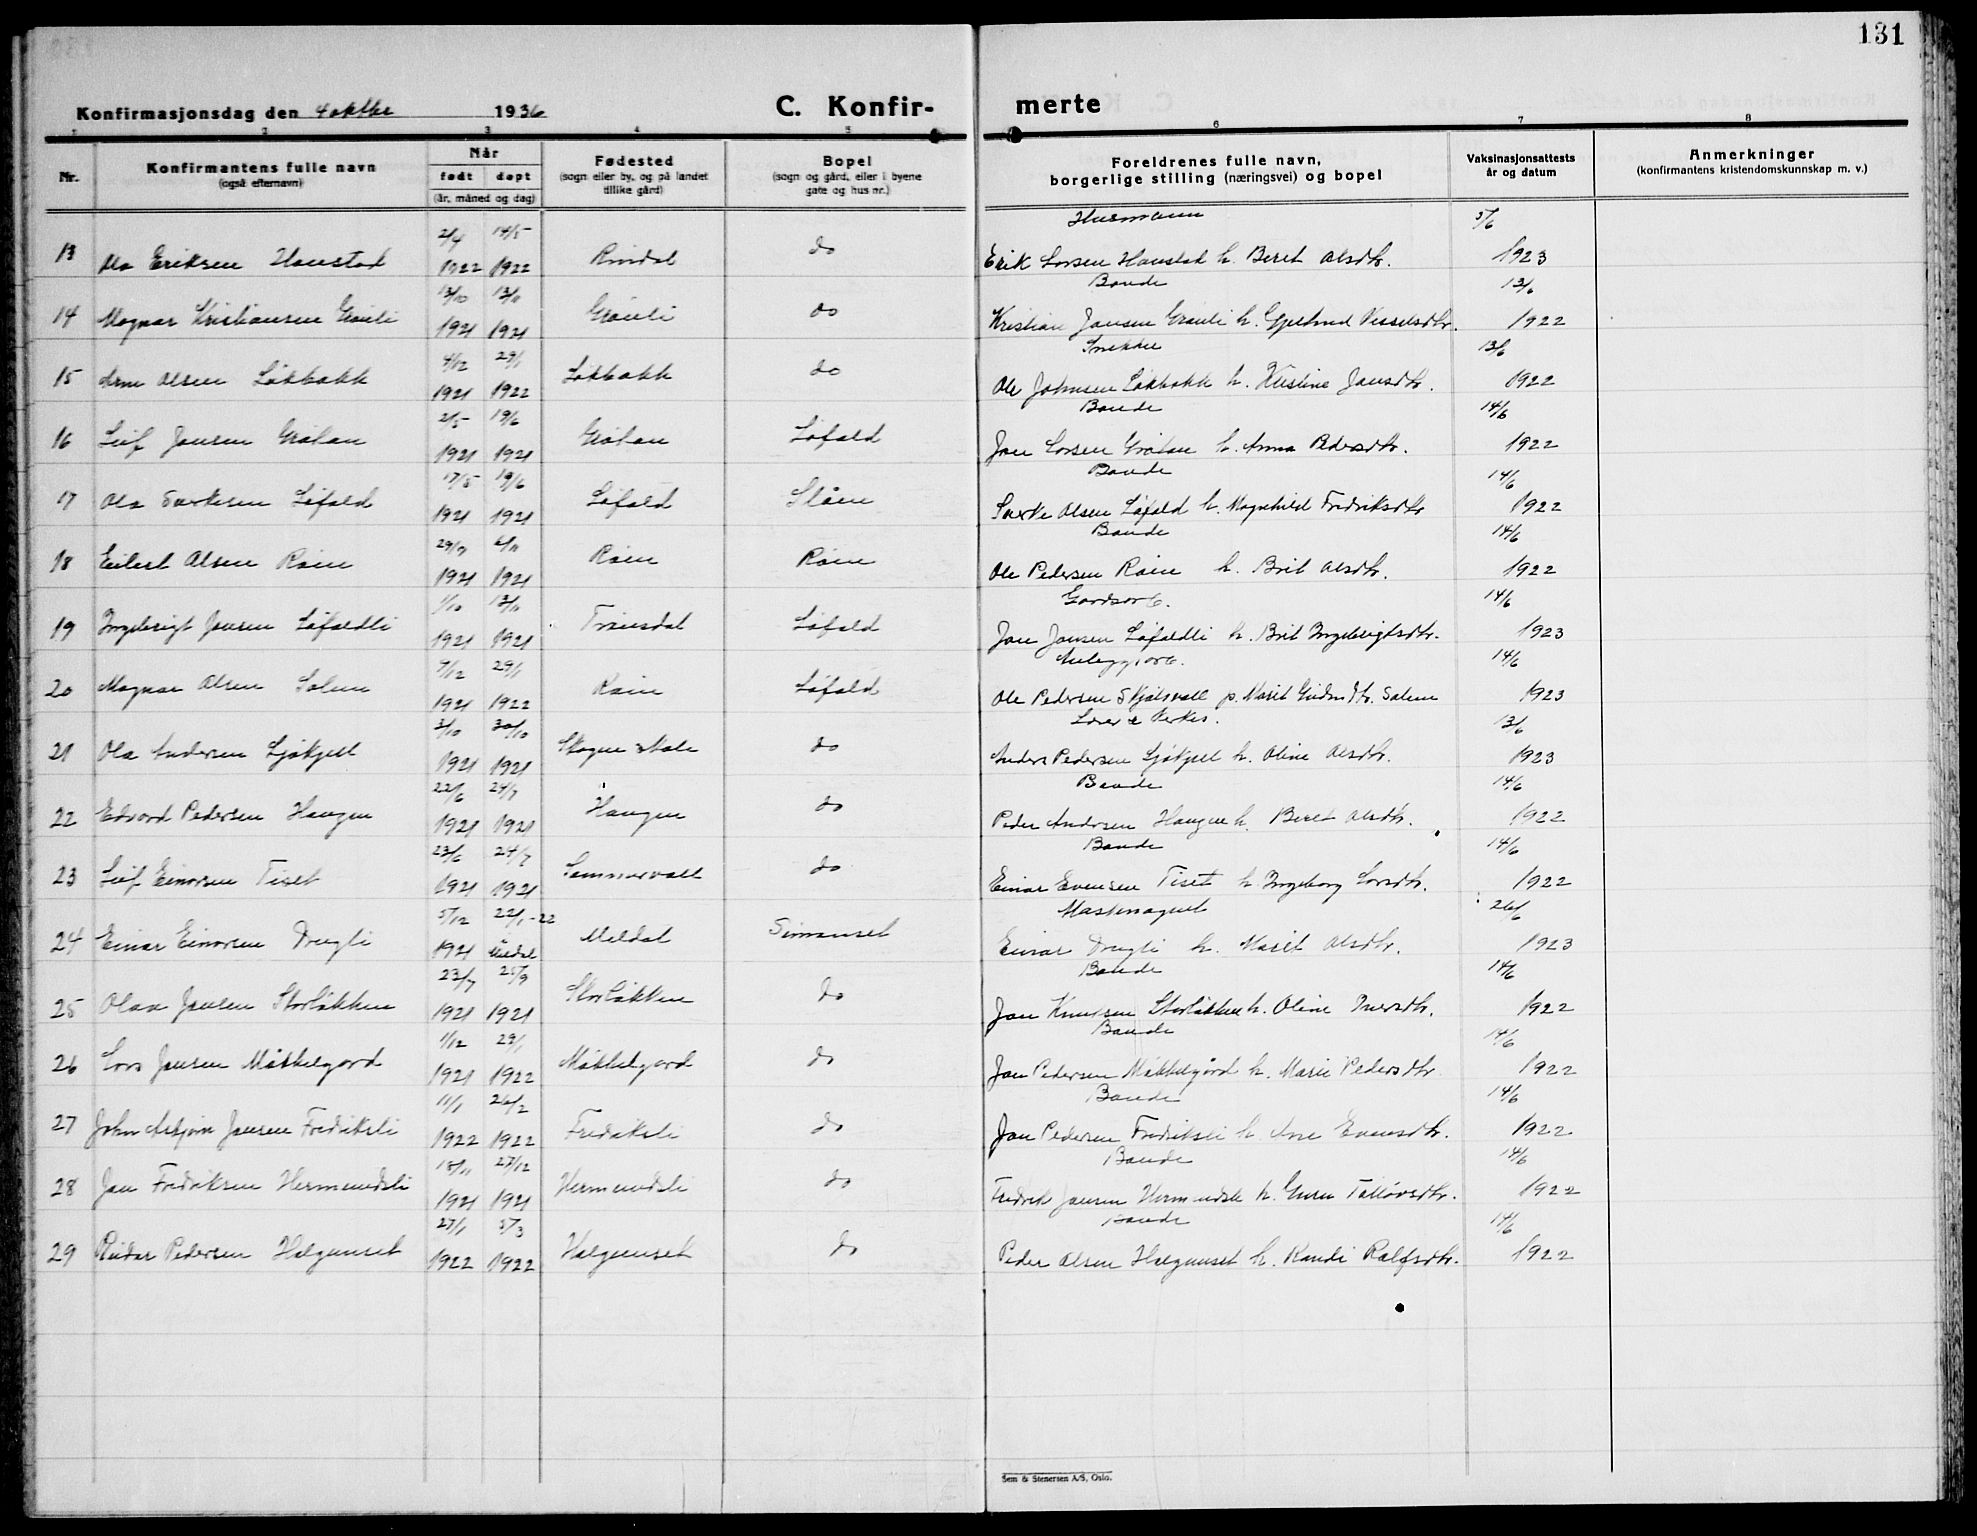 131
Konfirmasjonsdag den 4 oktbr 1936 C. Konfir- merte
1 2 3 4 5 6 7 8
Nr. Konfirmantens fulle navn (også efternavn) Når født døpt (år, måned og dag) Fødested (sogn eller by, og på landet tillike gård) Bopel (sogn og gård, eller i byene gate og hus nr.) Foreldrenes fulle navn, borgerlige stilling (næringsvei) og bopel Vaksinasjonsattests år og datum Anmerkninger (konfirmantens kristendomskunnskap m. v.)
2/4 14/5 Husmann 5/6
13 Ola Eriksen Hanstad 1922 1922 Rindal do Erik Larsen Hanstad h. Beret Olsdtr. 1923
13/10 13/11 Bonde 13/6
14 Magnar Kristiansen Gråuli 1921 1921 Gråuli do Kristian Jansen Gråuli h. Gjertrud Nisselsdtr. 1922
4/12 29/1 Snekker 13/6
15 Arne Olsen Løkbakk 1921 1922 Løkbakk do Ole Johnsen Løkbakk h. Kristine Jansdtr. 1922
2/5 19/6 Bonde 14/6
16 Leif Jansen Gråhan 1921 1921 Gråhan Løfald Jan Larsen Gråhan h. Anna Pedersdtr. 1922
17/5 19/6 Bonde 14/6
17 Ola Sverkesen Løfald 1921 1921 Løfald Slåen Sverke Olsen Løfald h. Magnhild Fredriksdtr 1922
29/9 6/11 Bonde 14/6
18 Eilert Olsen Røen 1921 1921 Røen Røen Ole Pedersen Røen h. Brit Olsdtr. 1922
1/10 13/11 Gårdsarb. 14/6
19 Ingebrigt Jansen Løfaldli 1921 1921 Trønsdal Løfald Jan Jansen Løfaldli h. Brit Ingebrigtsdtr. 1923
9/12 29/1 Anleggsarb. 14/6
20 Magnar Olsen Solem 1921 1922 Røen Løfald Ole Pedersen Skjølsvoll p. Marit Gudmdtr. Solem 1923
3/10 30/10 Lærer & Kirkes. 13/6
21 Ola Andersen Ljøkjell 1921 1921 Skogen skole do Anders Pedersen Ljøkjell h. Oline Olsdtr. 1923
22/6 24/7 Bonde 14/6
22 Edvard Pedersen Haugen 1921 1921 Haugen do Peder Andersen Haugen h. Beret Olsdtr. 1922
23/6 24/7 Bonde 14/6
23 Leif Einarsen Tiset 1921 1921 Sommervoll do Einar Evensen Tiset h. Ingeborg Larsdtr. 1922
5/12 22/1-22 26/6
24 Einar Einarsen Drugli 1921 Meldal Simonset Einar Drugli h. Marit Olsdtr. 1923
23/7 25/9 Bonde 14/6
25 Olav Jansen Storløkken 1921 1921 Storløkken do Jan Knutsen Storløkken h. Oline Iversdtr. 1922
1/12 29/1 Bonde 14/6
26 Lars Jansen Møkkelgard 1921 1922 Møkkelgard do Jan Pedersen Møkkelgård h. Marie Pedersdtr 1922
11/1 26/2 Bonde 14/6
27 John Asbjørn Jansen Fredriksli 1922 1922 Fredriksli do Jan Pedersen Fredriksli h. Ane Evensdtr. 1922
18/11 27/12 Bonde 14/6
28 Jan Fredriksen Hermundsli 1921 1921 Hermundsli do Fredrik Jansen Hermundsli h. Guru Tolløvsdtr. 1922
27/1 5/3 Bonde 14/6
29 Reidar Pedersen Helgumset 1922 1922 Helgumset do Peder Olsen Helgumset h. Randi Ralfsdtr. 1922
Sem & Stenersen A/S, Oslo.